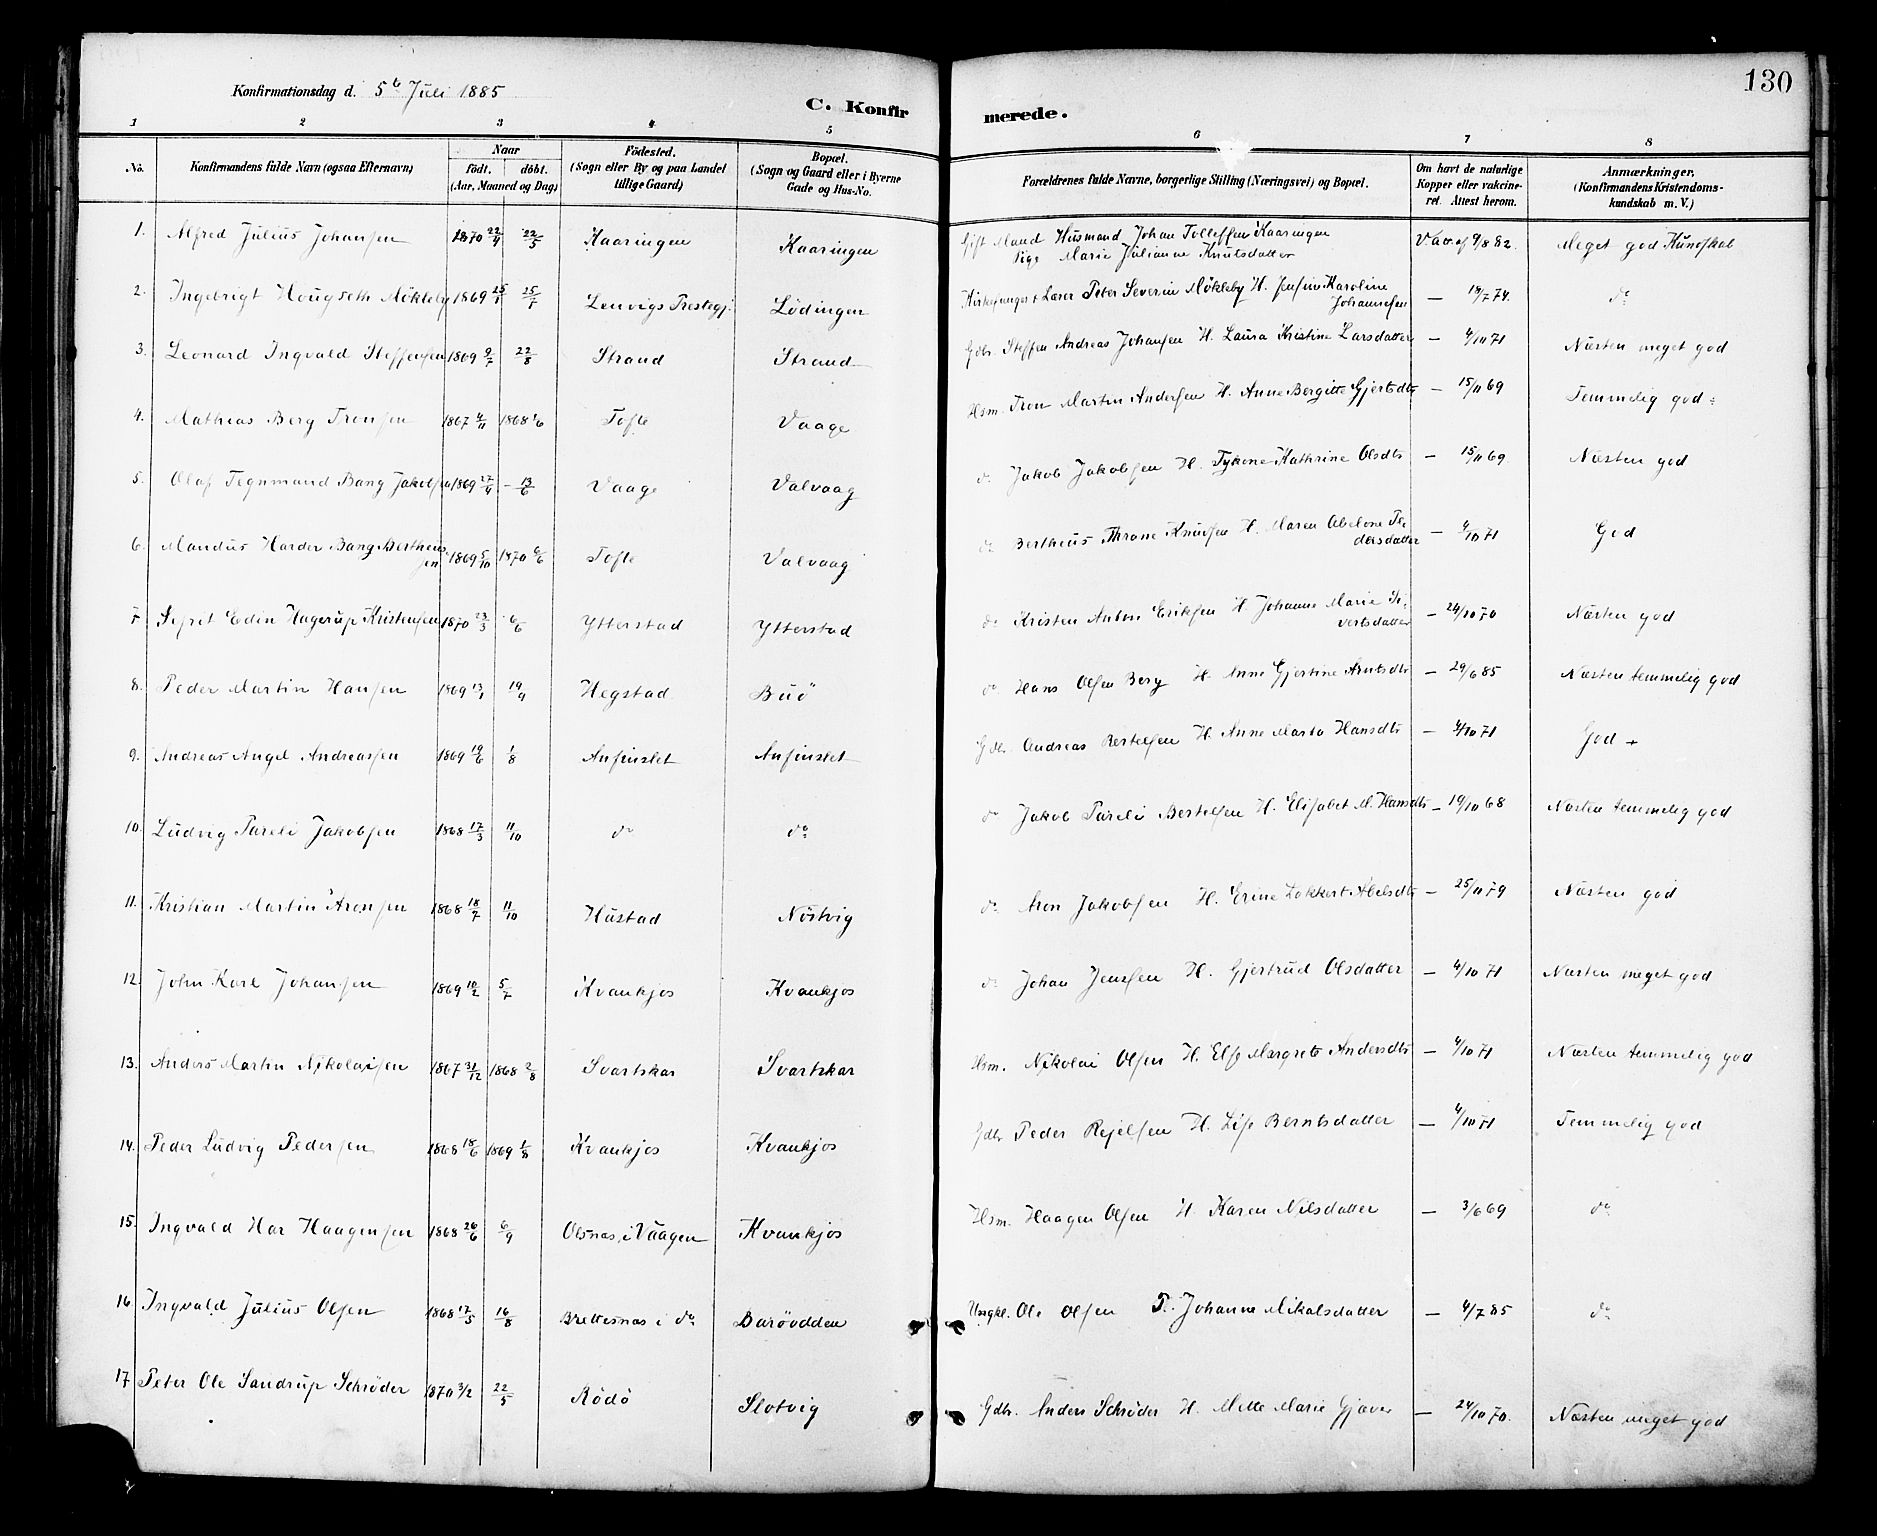 Konfirmationsdag d. 5te Juli 1885
C. Konfirmerede.
130
1 2 3 4 5 6 7 8
No. Konfirmandens fulde Navn (ogsaa Efternavn) Naar födt. döbt. (Aar, Maaned og Dag) Födested. (Sogn eller By og paa Landet tillige Gaard) Bopæl. (Sogn og Gaard eller i Byerne Gade og Hus-No. Forældrenes fulde Navne, borgerlige Stilling (Næringsvei) og Bopæl. Om havt de naturlige Kopper eller vakcineret. Attest herom. Anmærkninger. (Konfirmandens Kristendomskundskab m. V.)
1. Alfred Julius Johansen 1870 22/4 22/5 Kaaringen Kaaringen Gift Mand Husmand Johan Tollefsen Kaaringen Pige Marie Julianne Knutsdatter Vac. af 9/8 82. Meget god Kundskab
2. Ingebrigt Hougseth Mökleby 1869 25/1 25/5 Lenvigs Prestegj. Lödingen Kirkesanger + Lærer Peter Severin Mökleby H. Karoline Johannesen — 18/7 74. do
3. Leonard Ingvald Steffensen 1869 9/7 22/8 Strand Strand Gdbr. Steffen Andreas Johansen H. Laura Kristine Larsdatter — 4/10 71 Næsten meget god
4. Mathias Berg Tronsen 1867 4/11 1868 1/6 Tofte Vaage Hsm. Tron Martin Andersen H. Anne Bergitte Gjertsdtr — 15/11 69 Temmelig god
5. Olaf Tegnmand Bang Jakobsen 1869 27/4 – 13/6 Vaage Valvaag do Jakob Jakobsen H. Kathrine Olsdtr — 15/11 69 Næsten god
6. Mandus Harder Bang Bertheussen 1869 5/10 1870 6/6 Tofte Valvaag do Bertheus Throne Knudsen H. Maren Abelone Pedersdatter — 4/10 71 God
7. Sefrit Edin Hagerup Kristensen 1870 23/3 6/6 Ytterstad Ytterstad do Kristen Anton Eriksen H. Johanne Marie Sivertsdatter — 24/10 70 Næsten god
8. Peder Martin Hansen 1869 13/1 19/9 Hegstad Buö do Hans Olsen Berg H. Anne Gjertine Arntsdtr — 29/6 85 Næsten temmelig god
9. Andreas Angel Andreassen 1869 19/6 1/8 Anfinslet Anfinslet Gdbr. Andreas Bertelsen H. Anne Marta Hansdtr — 4/10 71 God +
10. Ludvig Pareli Jakobsen 1868 17/3 11/10 do do do Jakob Pareli Bertelsen H. Elisabet M. Hansdtr — 19/10 68 Næsten temmelig god
11. Kristian Martin Aronsen 1868 18/7 11/10 Hustad Nöstvig do Aron Jakobsen H. Erine Lokkert Abelsdtr — 25/11 79 Næsten god
12. John Karl Johansen 1869 10/2 5/7 Kvankjos Kvankjos do Johan Jensen H. Gjertrud Olsdatter — 4/10 71 Næsten meget god
13. Anders Martin Nikolaisen 1867 31/12 1868 2/8 Svartskar Svartskar Hsm. Nikolai Olsen H. Else Margrete Andersdtr — 4/10 71 Næsten temmelig god
14. Peder Ludvig Pedersen 1868 18/6 1869 1/8 Kvankjos Kvankjos Gdbr Peder Rejelsen H. Lise Berntsdatter — 4/10 71 Temmelig god
15. Ingvald Har Haagensen 1868 26/6 6/9 Olsnæs, i Vaagen Kvankjos Hsm. Haagen Olsen H. Karen Nilsdatter — 3/6 69 do
16. Ingvald Julius Olsen 1868 17/5 16/8 Brettesnæs i do Baröodden Ungkl. Ole Olsen P. Johanne Mikalsdatter — 4/7 85 do
17 Peter Ole Sandrup Schrøder 1870 3/2 22/5 Rödö Slotvig Gdbr. Anders Schrøder H. Mette Marie Gjæver — 24/10 70. Næsten meget god